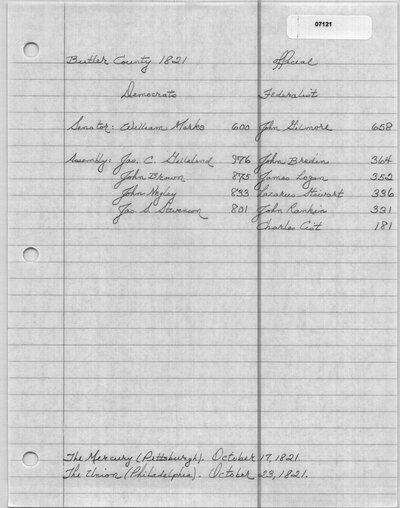 07121
Butler County 1821 Official
Democrats Federalist
Senator: William Marks 600 John Gilmore 658
Assembly: Jas. C. Gilleland 976 John Bredin 364
John Brown 875 James Logan 352
John Negley 833 Lazarus Stewart 336
Jas. S. Stevenson 801 John Rankin 331
Charles 181
The Mercury (Pittsburgh). October 17, 1821.
The Union (Philadelphia). October 23, 1821.